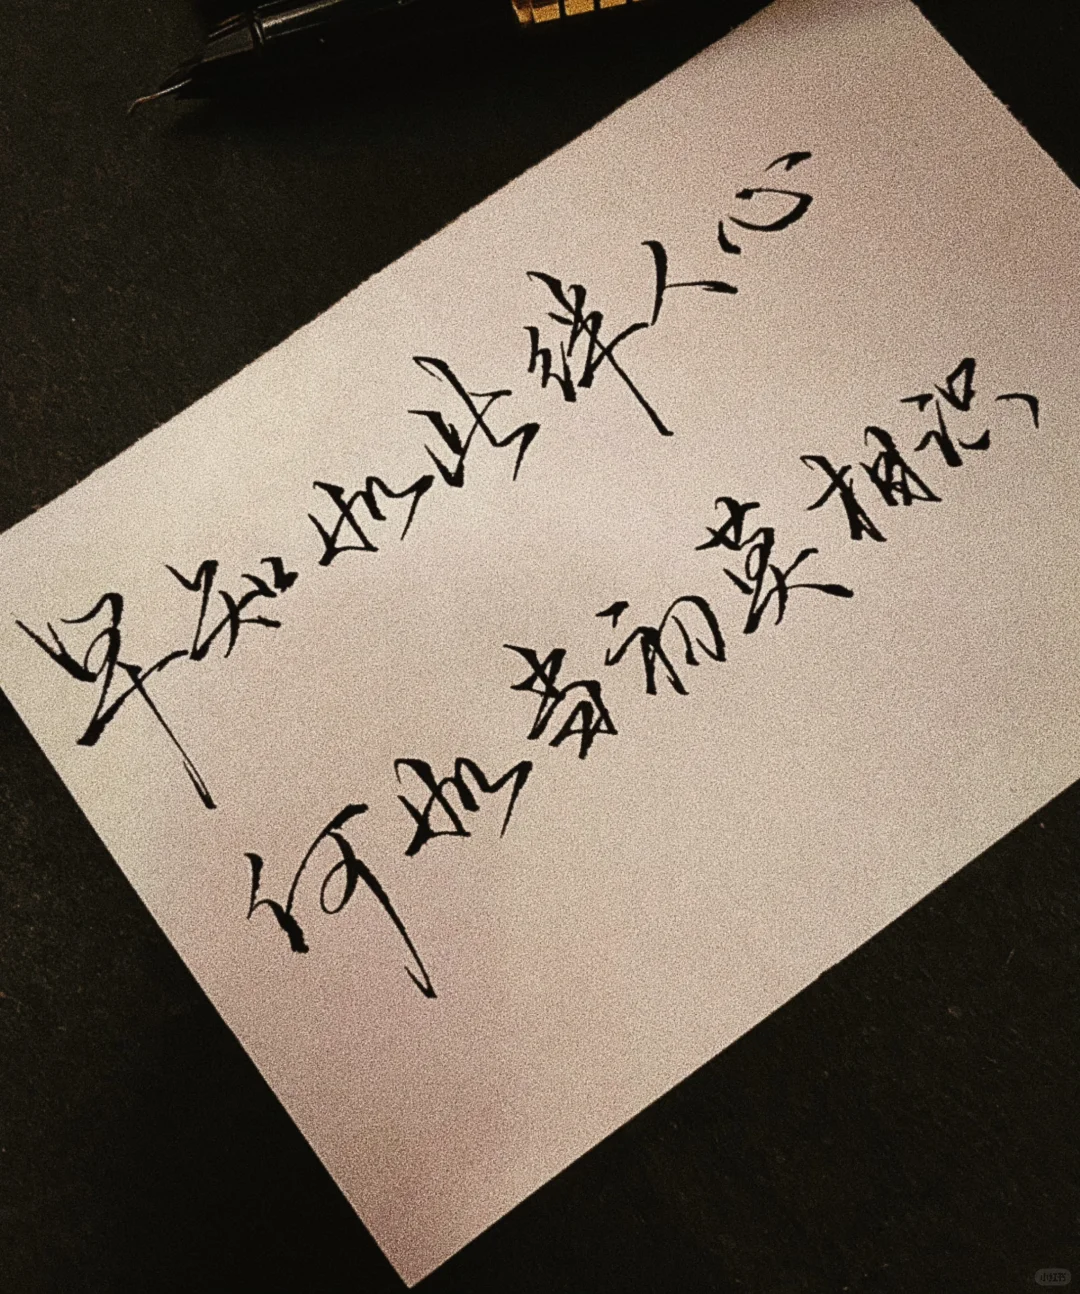 早知如此绊人心
何如当初莫相识
小红书